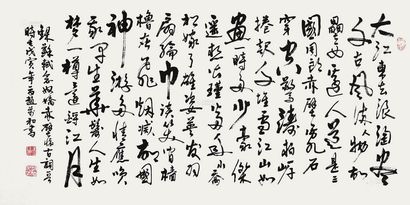 大江東去浪淘盡
千古風流人物故
壘西邊人道是三
國周郎赤壁亂石
穿空驚濤拍岸
捲起千堆雪江山如
畫一時多少豪傑
遥想公瑾當年小喬
初嫁了雄姿英發羽
扇綸巾談笑間檣
櫓灰飛煙滅故國
神游多情應笑
我早生華髮人生如
夢一樽還酹江月
録蘇軾念奴嬌赤壁懷古詞
戊寅年 書